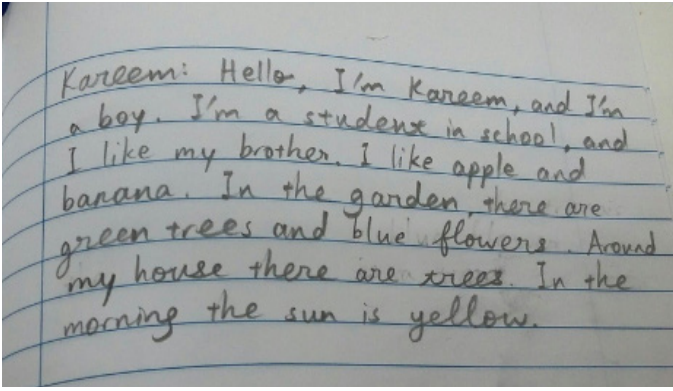 Kareem: Hello, I'm Kareem, and I'm
a boy. I'm a student in school, and
I like my brother. I like apple and
banana. In the garden, there are
green trees and blue flowers. Around
my house there are trees. In the
morning the sun is yellow.